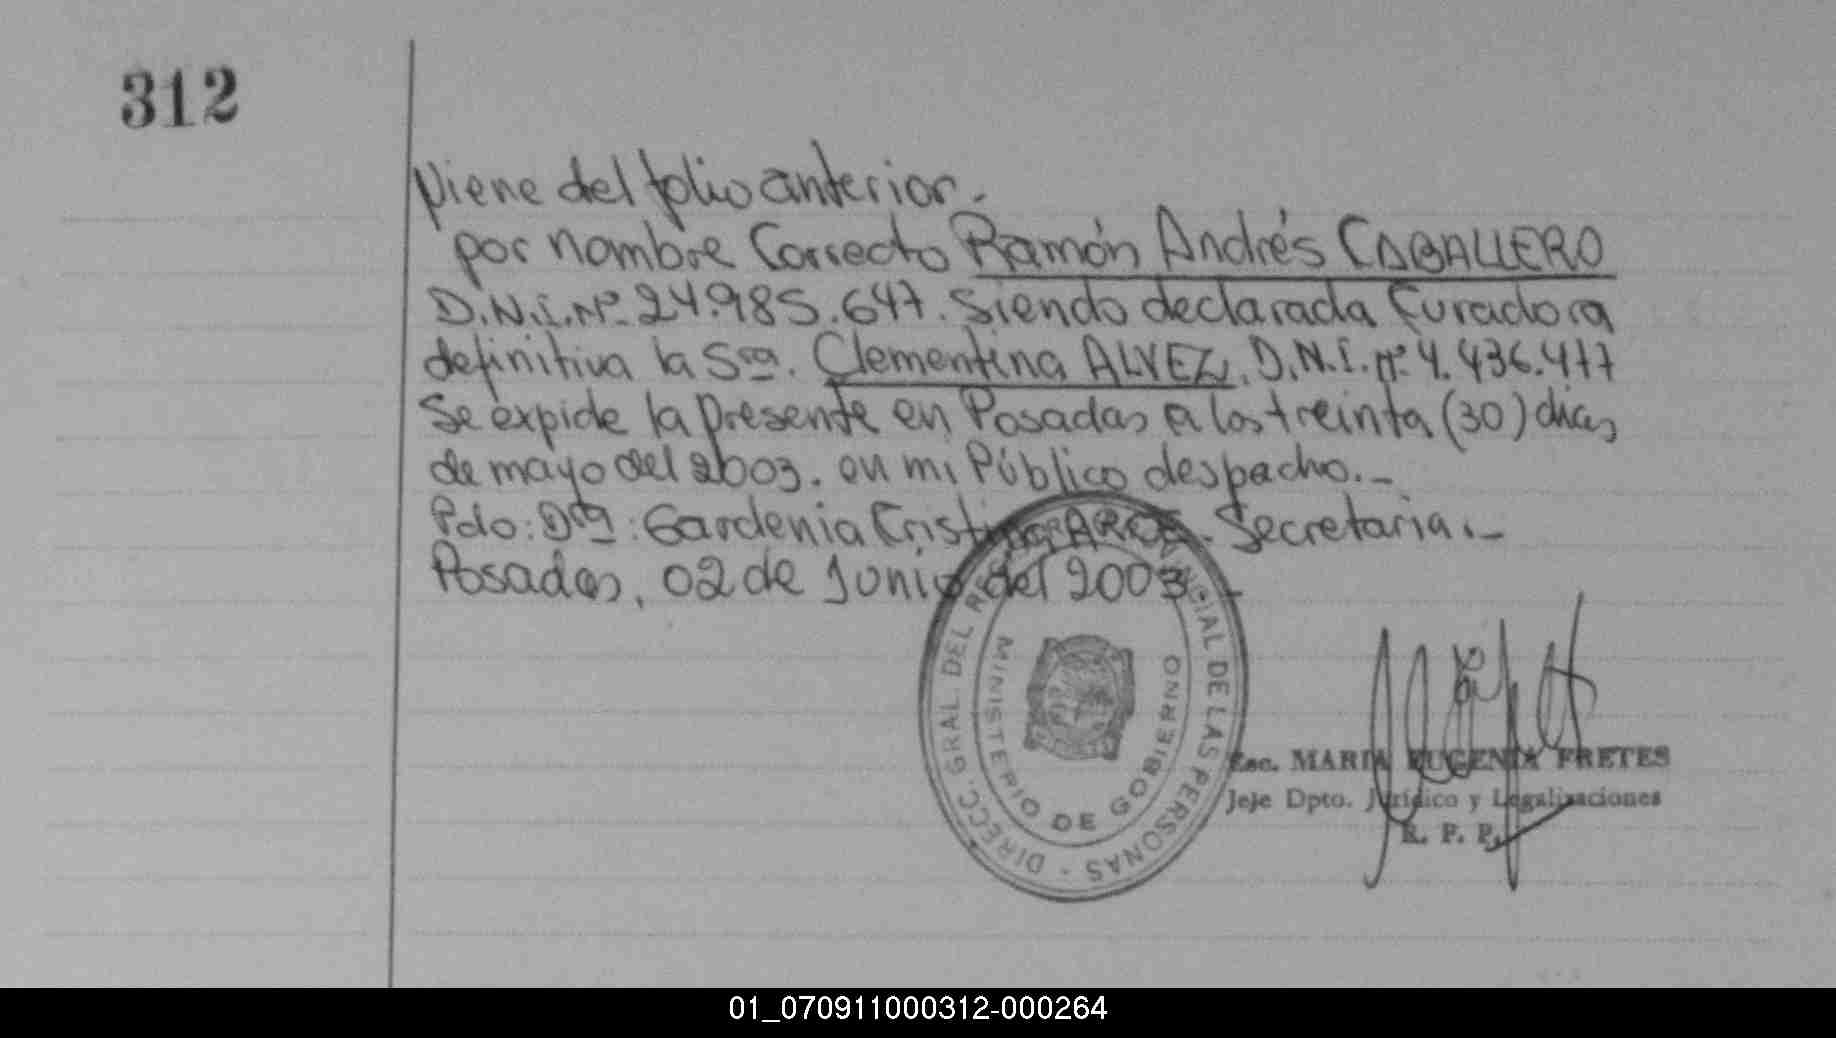 312
Viene del folio anterior.
por nombre Correcto Ramón Andrés CABALLERO
D.N.I. Nº 24.985.647. Siendo declarada Curadora
definitiva la Sra. Clementina ALVEZ, D.N.I. Nº 4.436.477
Se expide la presente en Posadas a los treinta (30) días
de mayo del 2003. en mi Público despacho.-
Pdo: Dra: Gardenia Cristina Secretaria.-
Posadas, 02 de Junio del 2003.-
DIRECC. GRAL. DEL REG. PROVINCIAL DE LAS PERSONAS -
MINISTERIO DE GOBIERNO
Esc. MARIA EUGENIA FRETES
Jefe Dpto. Jurídico y Legalizaciones
R. P. P.
01_070911000312-000264